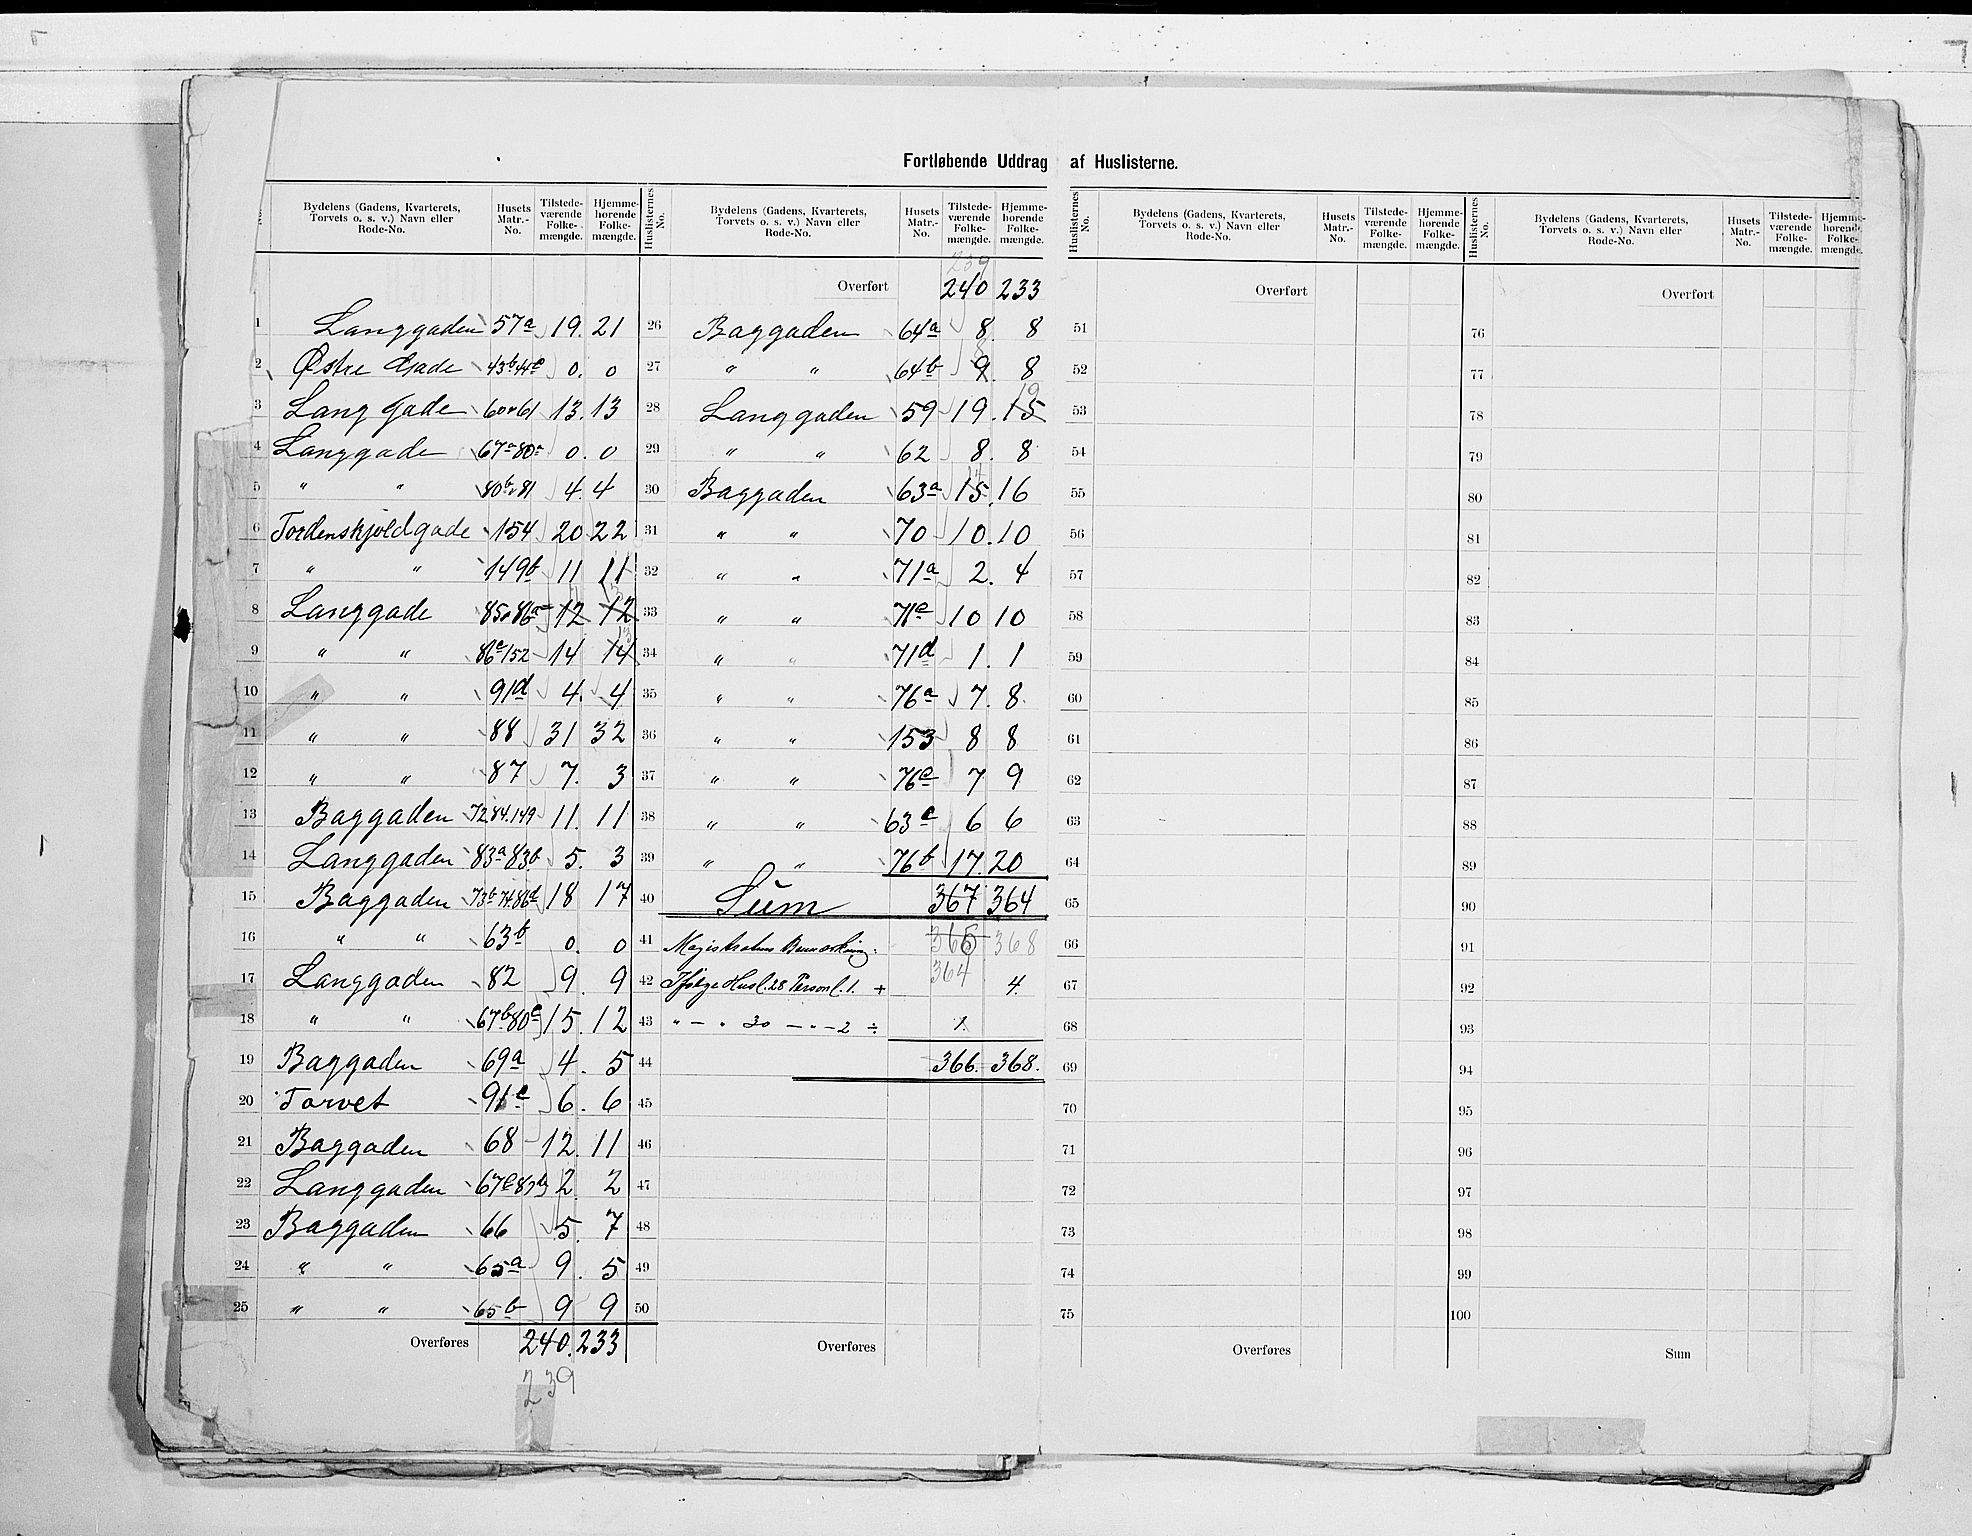 Fortløbende Uddrag af Huslisterne.
Bydelens (Gadens, Kvarterets, Torvets o. s. v.) Navn eller Rode-No. | Husets Matr.-No. | Tilstedeværende Folkemængde. | Hjemmehørende Folkemængde.
Huslisternes No. | Bydelens (Gadens, Kvarterets, Torvets o. s. v.) Navn eller Rode-No. | Husets Matr.-No. | Tilstedeværende Folkemængde. | Hjemmehørende Folkemængde.
Huslisternes No. | Bydelens (Gadens, Kvarterets, Torvets o. s. v.) Navn eller Rode-No. | Husets Matr.-No. | Tilstedeværende Folkemængde. | Hjemmehørende Folkemængde.
Huslisternes No. | Bydelens (Gadens, Kvarterets, Torvets o. s. v.) Navn eller Rode-No. | Husets Matr.-No. | Tilstedeværende Folkemængde. | Hjemmehørende Folkemængde.
1 Langgaden 57a 19. 21
2 Østre Gade 43b 44c 0. 0
3 Lang Gade 60 61 13. 13
4 Langgade 67a 80a 0. 0
5 " " 80b 81 4. 4
6 Tordenskjoldgade 154 20 22
7 " " 149b 11 11
8 Langgade 85 86a 12 12
9 " " 86c 152 14 14
10 " " 91d 4. 4
11 " " 88 31 32
12 " " 87 7. 3
13 Baggaden 72.84.149 11. 11
14 Langgaden 83a 83b 5. 3
15 Baggaden 73b 74 86d 18 17
16 " " 63b 0. 0
17 Langgaden 82 9. 9
18 " " 67b 80c 15. 12
19 Baggaden 69a 4. 5
20 Torvet 91c 6. 6
21 Baggaden 68 12. 11
22 Langgaden 67c 2. 2
23 Baggaden 66 5. 7
24 " " 65a 9. 5
25 " " 65b 9 9
Overføres 240. 233
239
239
Overført 240 233
26 Baggaden 64a 8. 8
27 " " 64b 9. 8
19
28 Langgaden 59 19. 15
29 " " 62 8. 8
14
30 Baggaden 63a 15. 16
31 " " 70 10. 10
32 " " 71a 2. 4
33 " " 71c 10 10
34 " " 71d 1. 1
35 " " 76a 7. 8.
36 " " 153 8 8
37 " " 76c 7 9
38 " " 63c 6 6
39 " " 76b 17. 20
40 Sum 367 364
41 Magistratens Bemærkning. 368
364
42 Ifølge Husl. 28 Personl. 1. + 4.
43 " — " 30 — " — 2 ÷ 1.
44 366. 368.
45
46
47
48
49
50
Overføres
Overført
51
52
53
54
55
56
57
58
59
60
61
62
63
64
65
66
67
68
69
70
71
72
73
74
75
Overføres
Overført
76
77
78
79
80
81
82
83
84
85
86
87
88
89
90
91
92
93
94
95
96
97
98
99
100
Sum